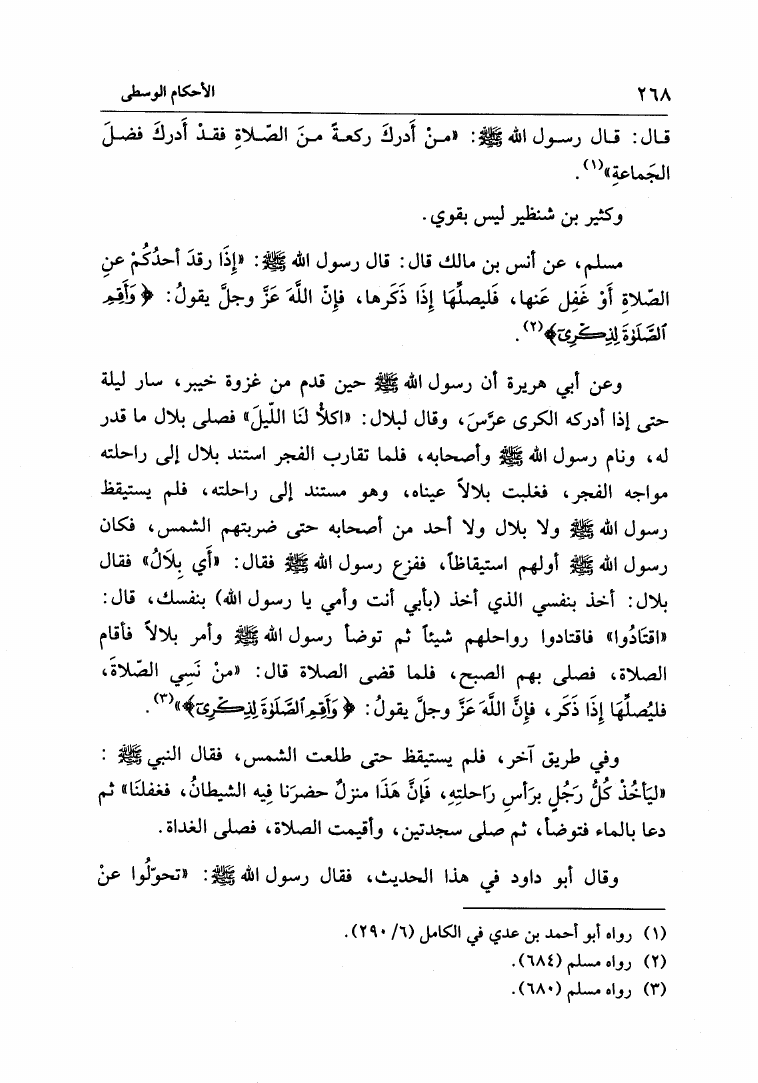 ٢٦٨ الأحكام الوسطى
قال: قال رسول الله ﷺ: «منْ أَدركَ ركعةً منَ الصّلاةِ فقدْ أَدركَ فضلَ
الجَماعةِ»(١).
وكثير بن شنظير ليس بقوي.
مسلم، عن أنس بن مالك قال: قال رسول الله ﷺ: «إِذَا رقدَ أحدُكُمْ عنِ
الصّلاةِ أوْ غَفِل عَنها، فَليصلِّهَا إِذَا ذَكَرها، فإِنّ اللَّهَ عَزَّ وجلَّ يقولُ: ﴿وَأَقِمِ
ٱلصَّلَوٰةَ لِذِكْرِىٓ﴾(٢).
وعن أبي هريرة أن رسول الله ﷺ حين قدم من غزوة خيبر، سار ليلة
حتى إذا أدركه الكرى عرَّسَ، وقال لبلال: «اكلأْ لنَا اللّيلَ» فصلى بلال ما قدر
له، ونام رسول الله ﷺ وأصحابه، فلما تقارب الفجر استند بلال إلى راحلته
مواجه الفجر، فغلبت بلالاً عيناه، وهو مستند إلى راحلته، فلم يستيقظ
رسول الله ﷺ ولا بلال ولا أحد من أصحابه حتى ضربتهم الشمس، فكان
رسول الله ﷺ أولهم استيقاظاً، ففزع رسول الله ﷺ فقال: «أَي بِلَالُ» فقال
بلال: أخذ بنفسي الذي أخذ (بأبي أنت وأمي يا رسول الله) بنفسك، قال:
«اقتَادُوا» فاقتادوا رواحلهم شيئاً ثم توضأ رسول الله ﷺ وأمر بلالاً فأقام
الصلاة، فصلى بهم الصبح، فلما قضى الصلاة قال: «منْ نَسِي الصّلاةَ،
فليُصلِّهَا إِذَا ذَكَر، فإِنَّ اللَّهَ عَزَّ وجلَّ يقولُ: ﴿وَأَقِمِ ٱلصَّلَوٰةَ لِذِكْرِىٓ﴾»(٣).
وفي طريق آخر، فلم يستيقظ حتى طلعت الشمس، فقال النبي ﷺ:
«ليَأخُذْ كُلُّ رَجُلٍ برَأسِ رَاحلتِهِ، فَإِنَّ هَذَا منزلٌ حضرَنا فِيه الشيطانُ، فغفلنَا» ثم
دعا بالماء فتوضأ، ثم صلى سجدتين، وأقيمت الصلاة، فصلى الغداة.
وقال أبو داود في هذا الحديث، فقال رسول الله ﷺ: «تحوّلُوا عنْ
(١) رواه أبو أحمد بن عدي في الكامل (٦/ ٢٩٠).
(٢) رواه مسلم (٦٨٤).
(٣) رواه مسلم (٦٨٠).